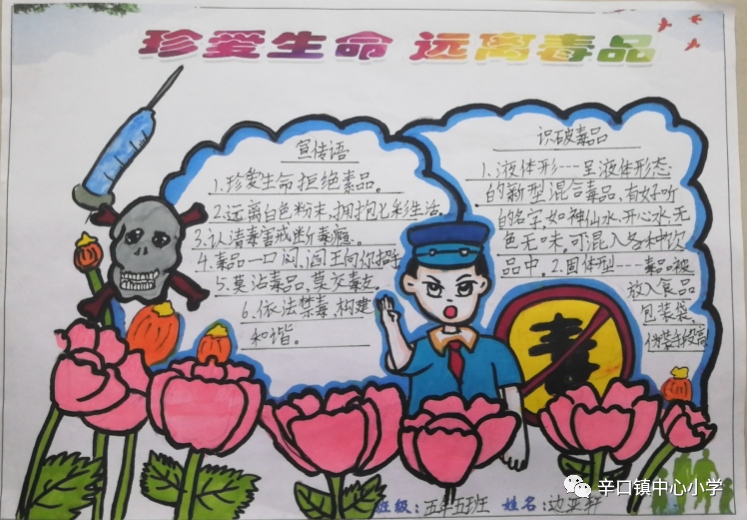 珍爱生命 远离毒品
宣传语
1.珍爱生命拒绝毒品。
2.远离白色粉末,拥抱七彩生活。
3.认清毒害戒断毒瘾。
4.毒品一口闷,阎王向你招手
5.莫沾毒品,莫交毒友。
6.依法禁毒 构建
和谐。
识破毒品
1.液体形---呈液体形态
的新型混合毒品,有好听
的名字,如神仙水,开心水,无
色无味,可混入各种饮
品中。2.固体型---毒品被
放入食品
包装袋,
伪装手段高
毒
班级:五年五班 姓名:边
辛口镇中心小学